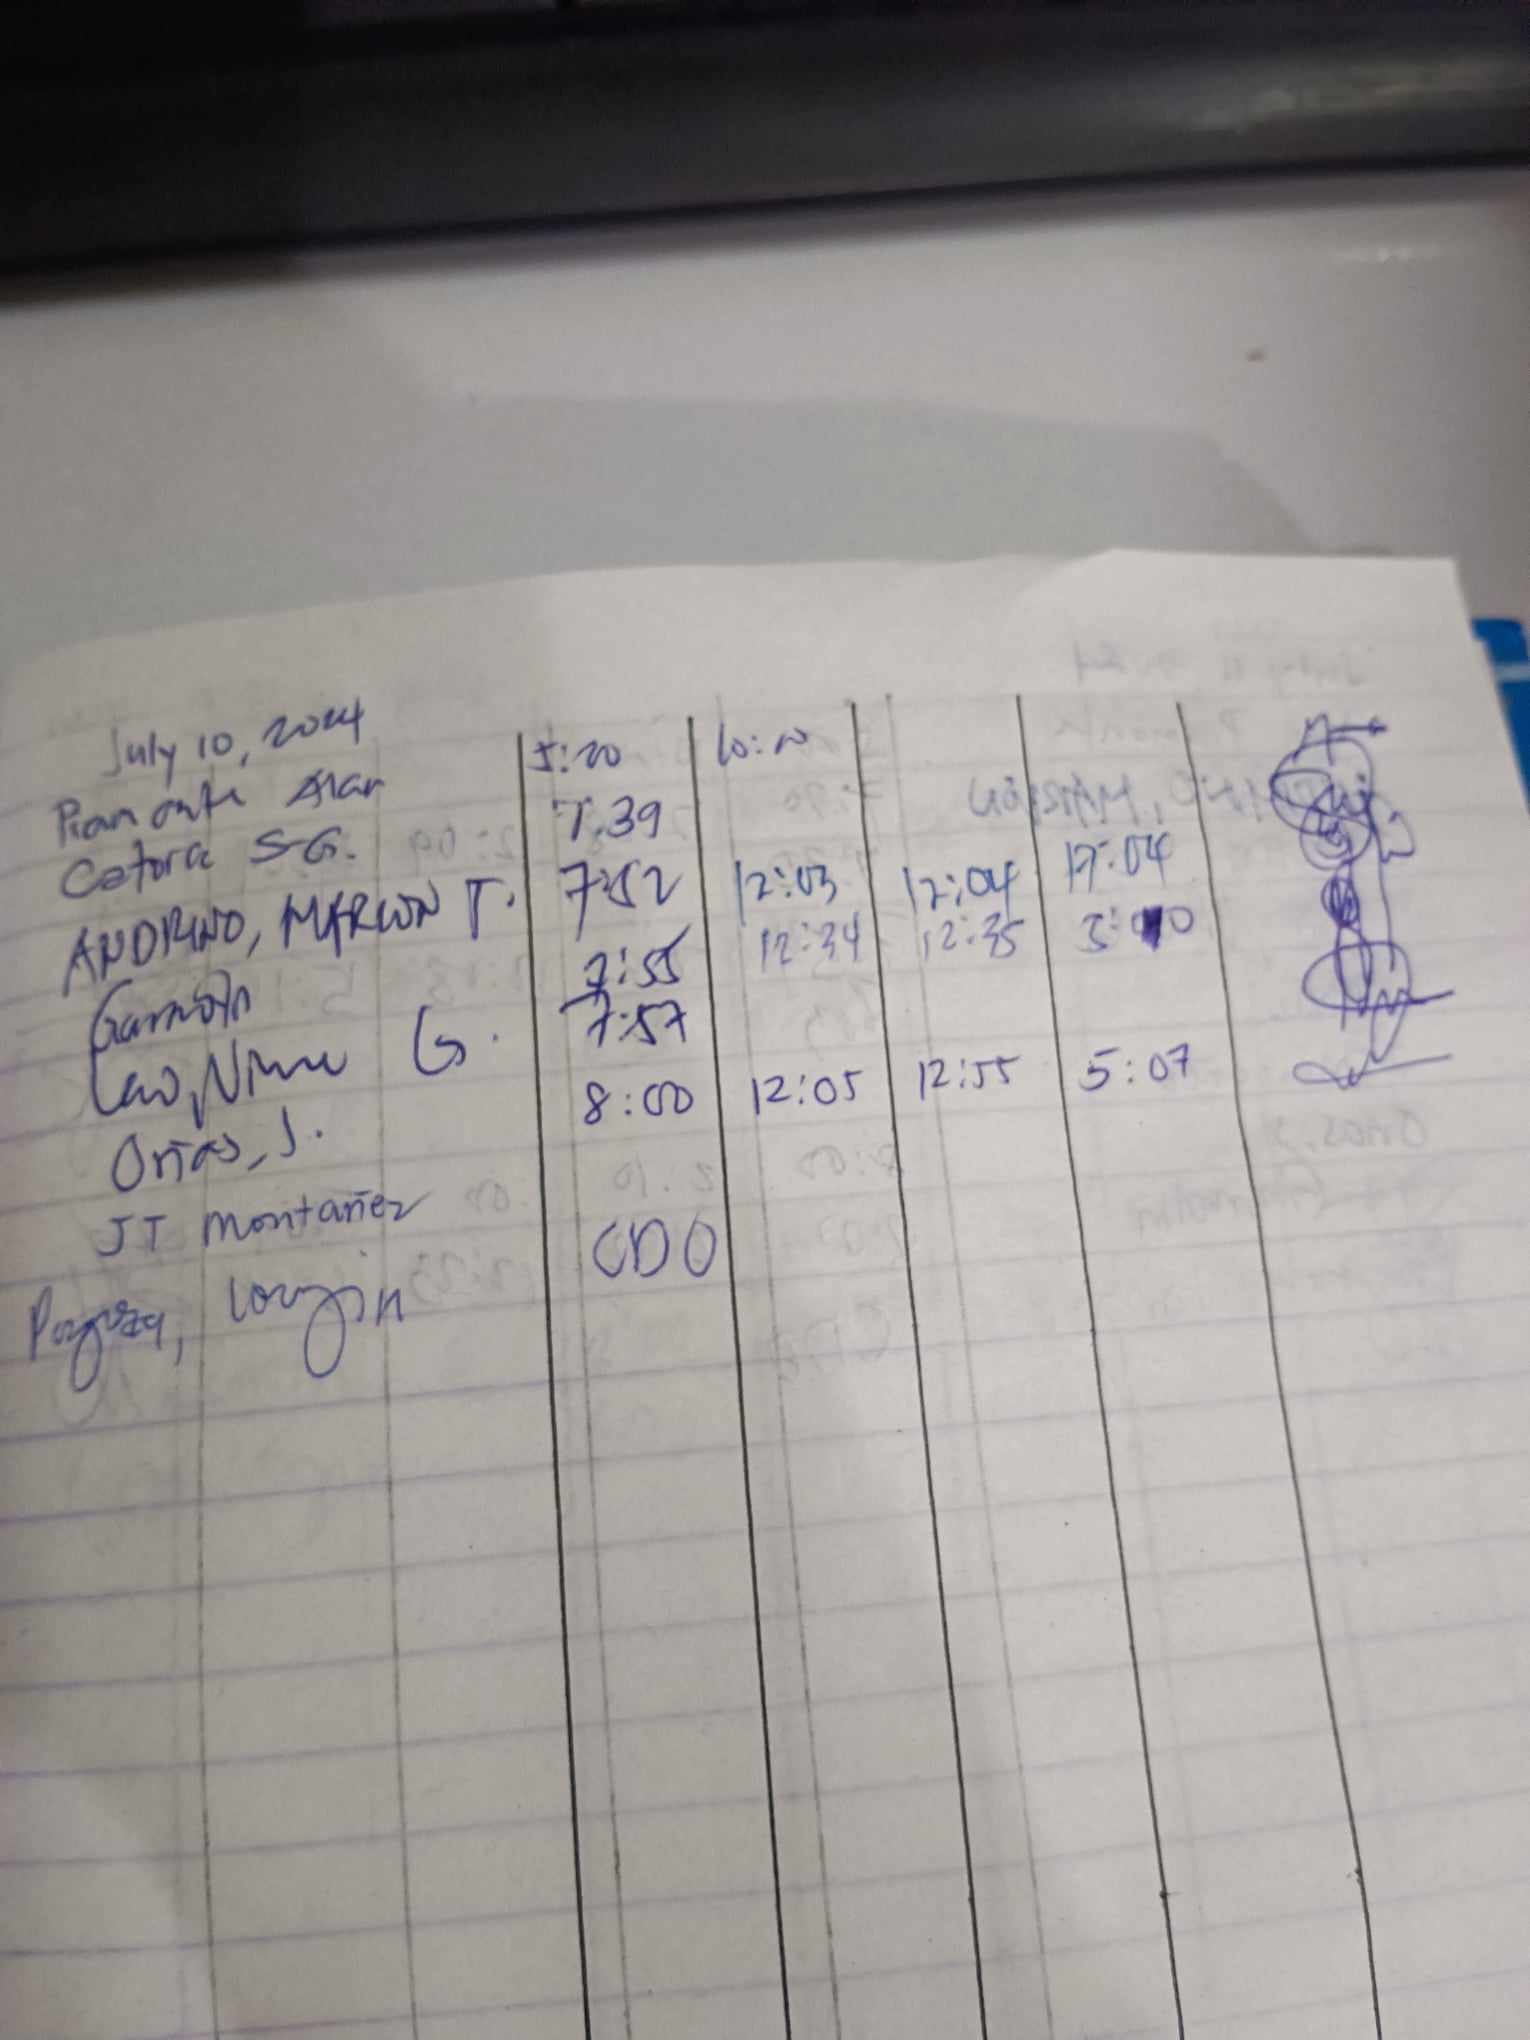 July 10, 2024
Piamonte Alan 5:20 10:20
Catora S G. 7:39
ANDRINO, MARLON T. 7:52 12:03 12:04 17:04
Garnoln 7:55 12:34 12:35 3:00
Lao, G. 7:57
Orias, J. 8:00 12:05 12:55 5:07
JT Montañez
CDO